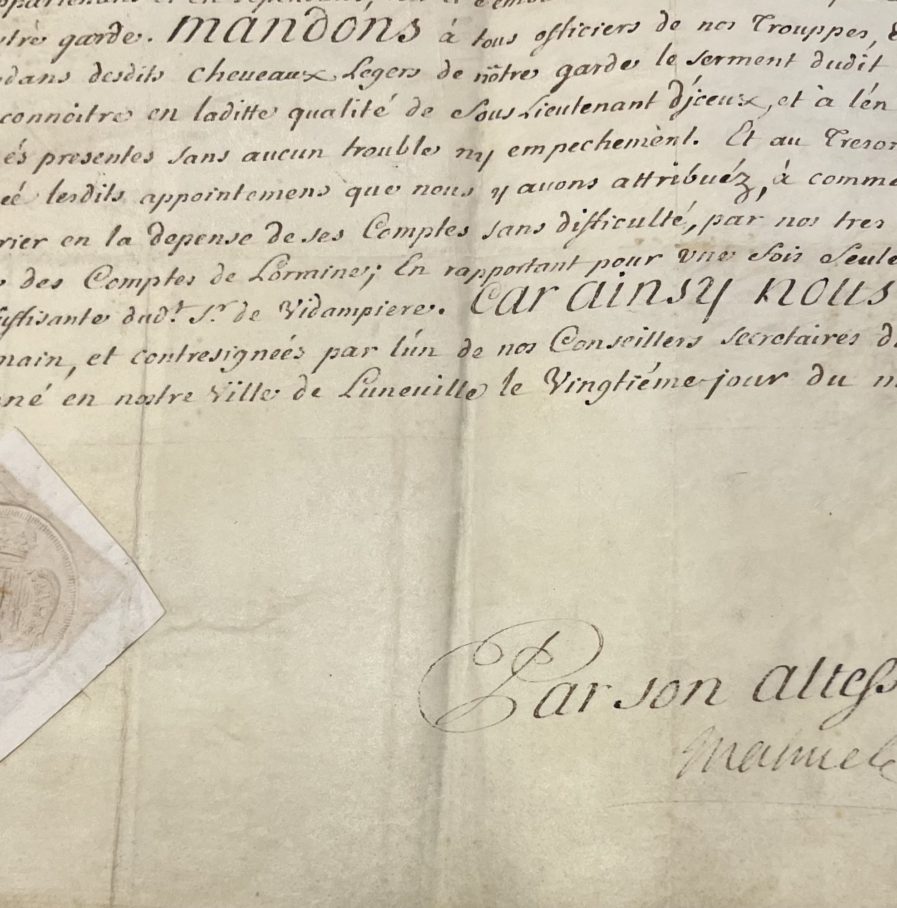 nôtre garde. Mandons à tous officiers de nos Trouppes,
dans desdits Cheveaux Legers de nôtre garde le serment dudit
connoitre en laditte qualité de Sous Lieutenant D'jceux, et à l'en
és presentes sans aucun trouble ny empechement. Et au Tresor
eé lesdits appointemens que nous y avons attribuéz, à comme
rier en la depense de ses Comptes sans difficulté, par nos tres
des Comptes de Lorraine; En rapportant pour une Fois Seule
uffisante dud.t S.r de Vidampiere. Car ainsy nous
main, et contresigneés par l'un de nos Conseillers secretaires d
né en nostre Ville de Luneville le Vingtiéme jour du m
Par son altess